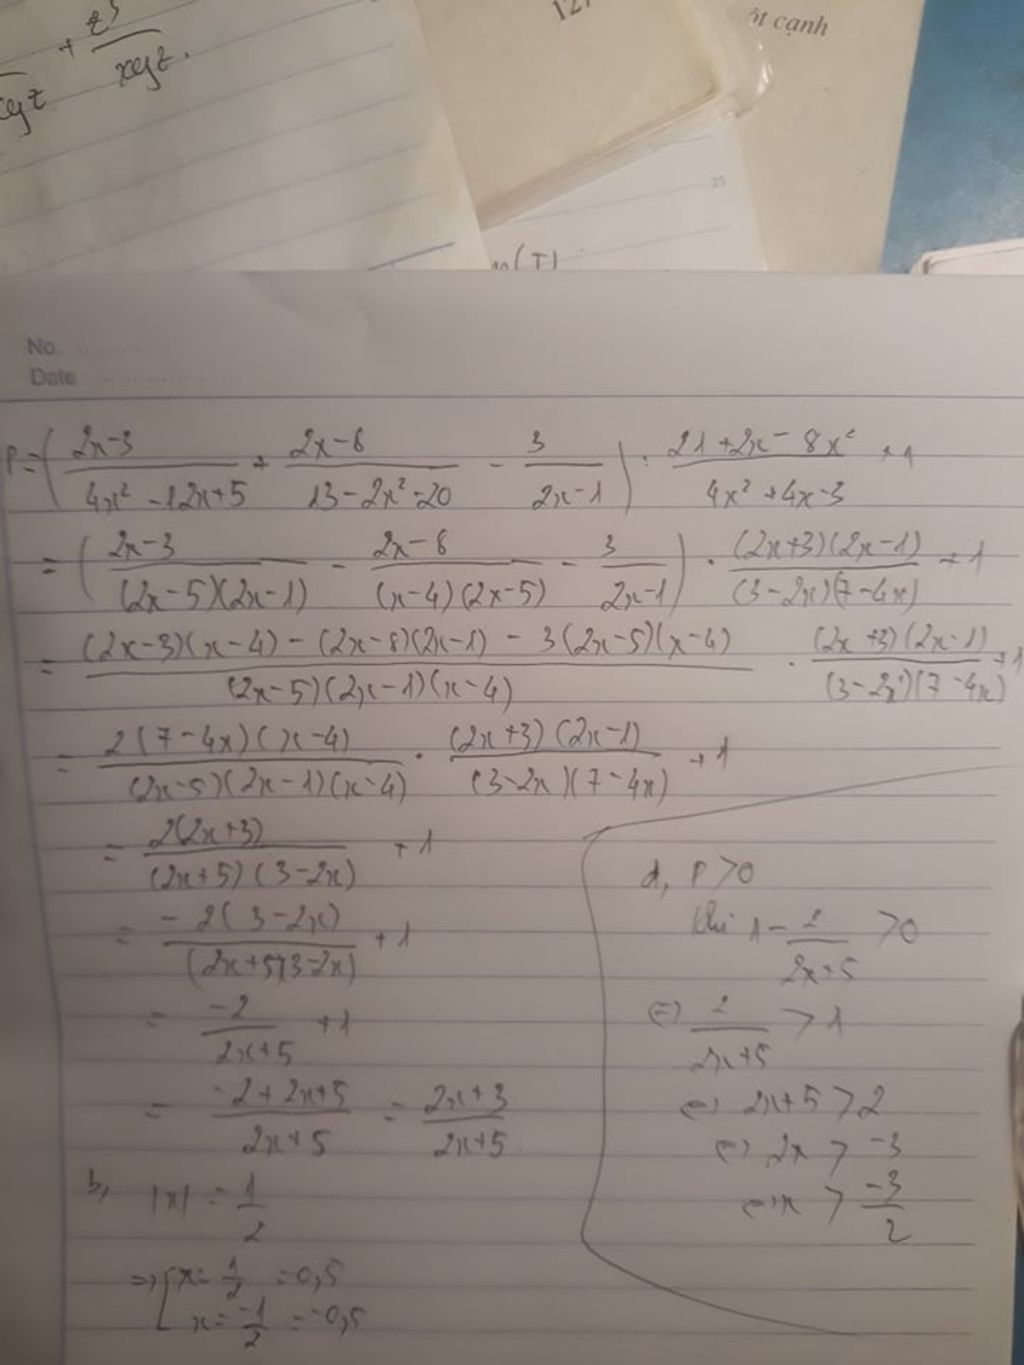 + z⁵/xyz.
xyz
127
ốt cạnh
25
(T)
No.
Date
P = ( (2x-3)/(4x² - 12x+5) + (2x-8)/(13-2x²-20) - 3/(2x-1) ) : (21+2x-8x²)/(4x²+4x-3) + 1
= ( (2x-3)/((2x-5)(2x-1)) - (2x-8)/((x-4)(2x-5)) - 3/(2x-1) ) · ((2x+3)(2x-1))/((3-2x)(7-4x)) + 1
= ((2x-3)(x-4) - (2x-8)(2x-1) - 3(2x-5)(x-4))/((2x-5)(2x-1)(x-4)) · ((2x+3)(2x-1))/((3-2x)(7-4x)) + 1
= (2(7-4x)(x-4))/((2x-5)(2x-1)(x-4)) · ((2x+3)(2x-1))/((3-2x)(7-4x)) + 1
= 2(2x+3)/((2x+5)(3-2x)) + 1
= -2(3-2x)/((2x+5)(3-2x)) + 1
= -2/(2x+5) + 1
= (-2+2x+5)/(2x+5) = (2x+3)/(2x+5)
b, |x| = 1/2
=> [ x = 1/2 = 0,5
x = -1/2 = -0,5
d, P > 0
khi 1 - 2/(2x+5) > 0
(=) 2/(2x+5) > 1
(=) 2x+5 > 2
(=) 2x > -3
(=) x > -3/2